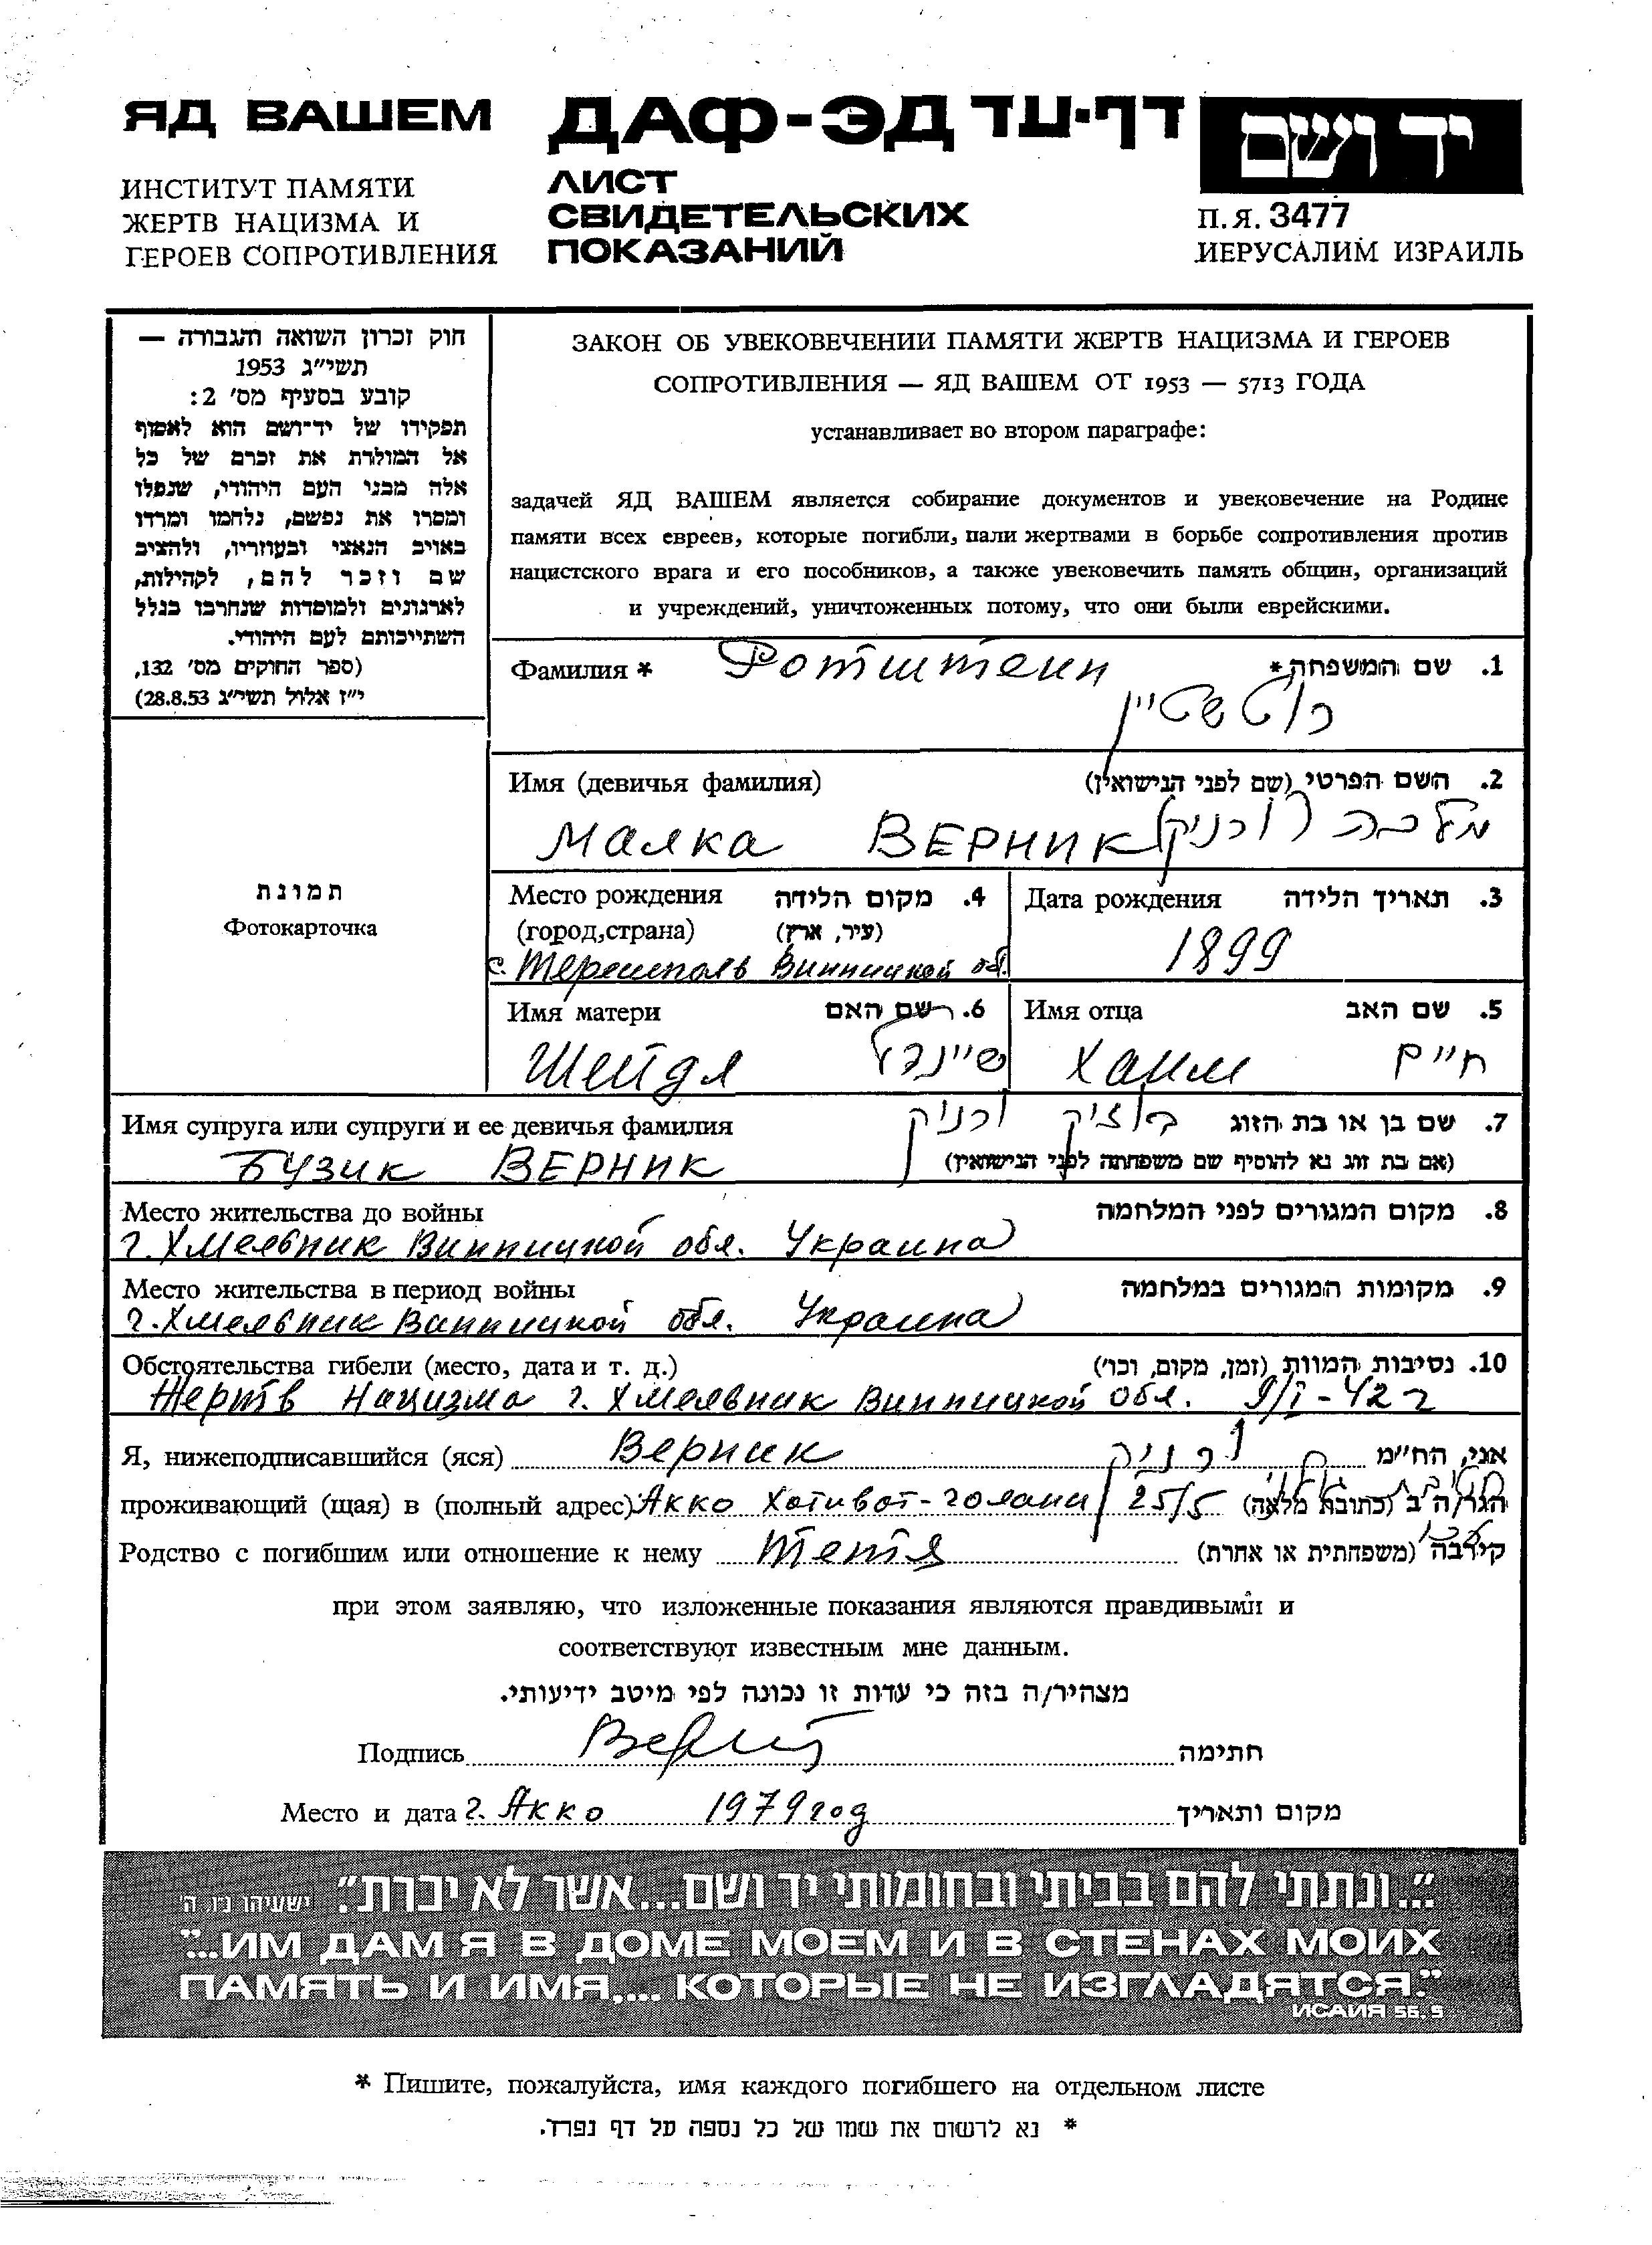 ЯД ВАШЕМ
ИНСТИТУТ ПАМЯТИ
ЖЕРТВ НАЦИЗМА И
ГЕРОЕВ СОПРОТИВЛЕНИЯ
ДАФ-ЭД דף-עד
ЛИСТ
СВИДЕТЕЛЬСКИХ
ПОКАЗАНИЙ
יד ושם
П.Я. 3477
ИЕРУСАЛИМ ИЗРАИЛЬ
חוק זכרון השואה והגבורה —
תשי״ג 1953
קובע בסעיף מס׳ 2:
תפקידו של יד־ושם הוא לאסוף
אל המולדת את זכרם של כל
אלה מבני העם היהודי, שנפלו
ומסרו את נפשם, נלחמו ומרדו
באויב הנאצי ובעוזריו, ולהציב
שם וזכר להם, לקהילות,
לארגונים ולמוסדות שנחרבו בגלל
השתייכותם לעם היהודי.
(ספר החוקים מס׳ 132,
י״ז אלול תשי״ג 28.8.53)
ЗАКОН ОБ УВЕКОВЕЧЕНИИ ПАМЯТИ ЖЕРТВ НАЦИЗМА И ГЕРОЕВ
СОПРОТИВЛЕНИЯ — ЯД ВАШЕМ ОТ 1953 — 5713 ГОДА
устанавливает во втором параграфе:
задачей ЯД ВАШЕМ является собирание документов и увековечение на Родине
памяти всех евреев, которые погибли, пали жертвами в борьбе сопротивления против
нацистского врага и его пособников, а также увековечить память общин, организаций
и учреждений, уничтоженных потому, что они были еврейскими.
Фамилия * Ротштеин 1. שם המשפחה *
רוטשטיין
Имя (девичья фамилия) 2. השם הפרטי (שם לפני הנישואין)
Малка ВЕРНИК מלכה (ורניק)
תמונת
Фотокарточка
Место рождения 4. מקום הלידה
(город,страна) (עיר, ארץ)
с. Терешполь Винницкой об.
Дата рождения 3. תאריך הלידה
1899
Имя матери 6. שם האם
Шейдл שיינדל
Имя отца 5. שם האב
Хаим חיים
Имя супруга или супруги и ее девичья фамилия 7. שם בן או בת הזוג בוזיק ורניק
Бузик ВЕРНИК (אם בת זוג נא להוסיף שם משפחתה לפני הנישואין)
Место жительства до войны 8. מקום המגורים לפני המלחמה
г. Хмельник Винницкой обл. Украина
Место жительства в период войны 9. מקומות המגורים במלחמה
г. Хмельник Винницкой обл. Украина
Обстоятельства гибели (место, дата и т. д.) 10. נסיבות המוות (זמן, מקום, וכו׳)
Жертв Нацизма г. Хмельник Винницкой обл. 9/I-42 г
Я, нижеподписавшийся (яся) Верник ורניק אני, הח״מ
проживающий (щая) в (полный адрес) Акко Хативат-голани 25/5 הגר/ה ב (כתובת מלאה)
Родство с погибшим или отношение к нему Тетя קירבה (משפחתית או אחרת)
при этом заявляю, что изложенные показания являются правдивыми и
соответствуют известным мне данным.
מצהיר/ה בזה כי עדות זו נכונה לפי מיטב ידיעותי.
Подпись חתימה
Место и дата г. Акко 1979 год מקום ותאריך
"...ונתתי להם בביתי ובחומותי יד ושם...אשר לא יכרת". ישעיהו נ״ו, ה׳
"...ИМ ДАМ Я В ДОМЕ МОЕМ И В СТЕНАХ МОИХ
ПАМЯТЬ И ИМЯ.... КОТОРЫЕ НЕ ИЗГЛАДЯТСЯ."
ИСАИЯ 56, 5
* Пишите, пожалуйста, имя каждого погибшего на отдельном листе
* נא לרשום את שמו של כל נספה על דף נפרד.